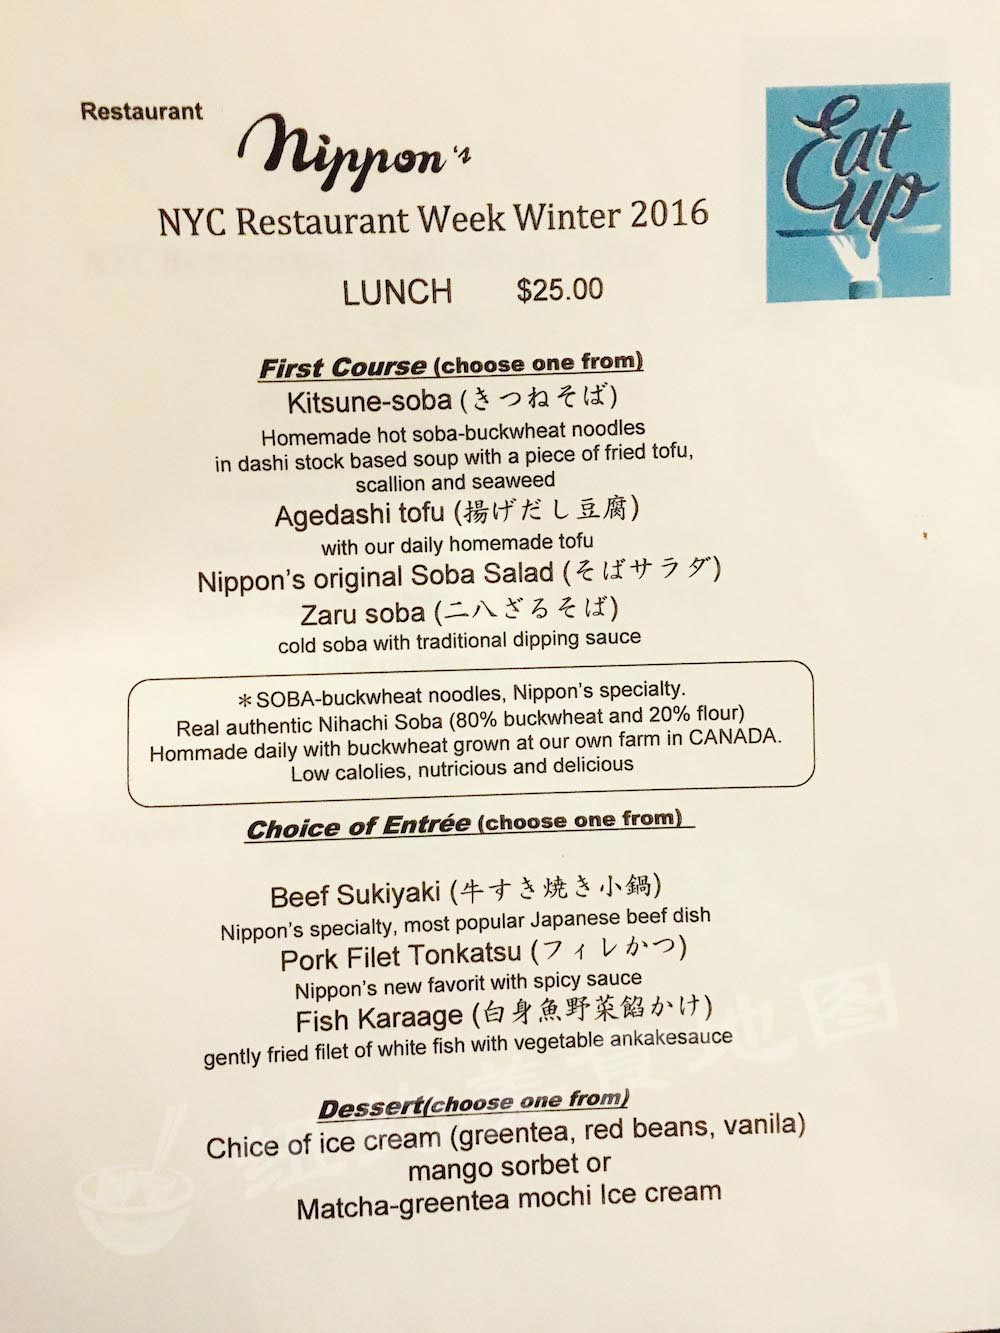 Restaurant
Nippon's
Eat
up
NYC Restaurant Week Winter 2016
LUNCH $25.00
First Course (choose one from)
Kitsune-soba (きつねそば)
Homemade hot soba-buckwheat noodles
in dashi stock based soup with a piece of fried tofu,
scallion and seaweed
Agedashi tofu (揚げだし豆腐)
with our daily homemade tofu
Nippon's original Soba Salad (そばサラダ)
Zaru soba (二八ざるそば)
cold soba with traditional dipping sauce
＊SOBA-buckwheat noodles, Nippon's specialty.
Real authentic Nihachi Soba (80% buckwheat and 20% flour)
Hommade daily with buckwheat grown at our own farm in CANADA.
Low calolies, nutricious and delicious
Choice of Entrée (choose one from)
Beef Sukiyaki (牛すき焼き小鍋)
Nippon's specialty, most popular Japanese beef dish
Pork Filet Tonkatsu (フィレかつ)
Nippon's new favorit with spicy sauce
Fish Karaage (白身魚野菜餡かけ)
gently fried filet of white fish with vegetable ankakesauce
Dessert(choose one from)
Chice of ice cream (greentea, red beans, vanila)
mango sorbet or
Matcha-greentea mochi Ice cream
纽约美食地图